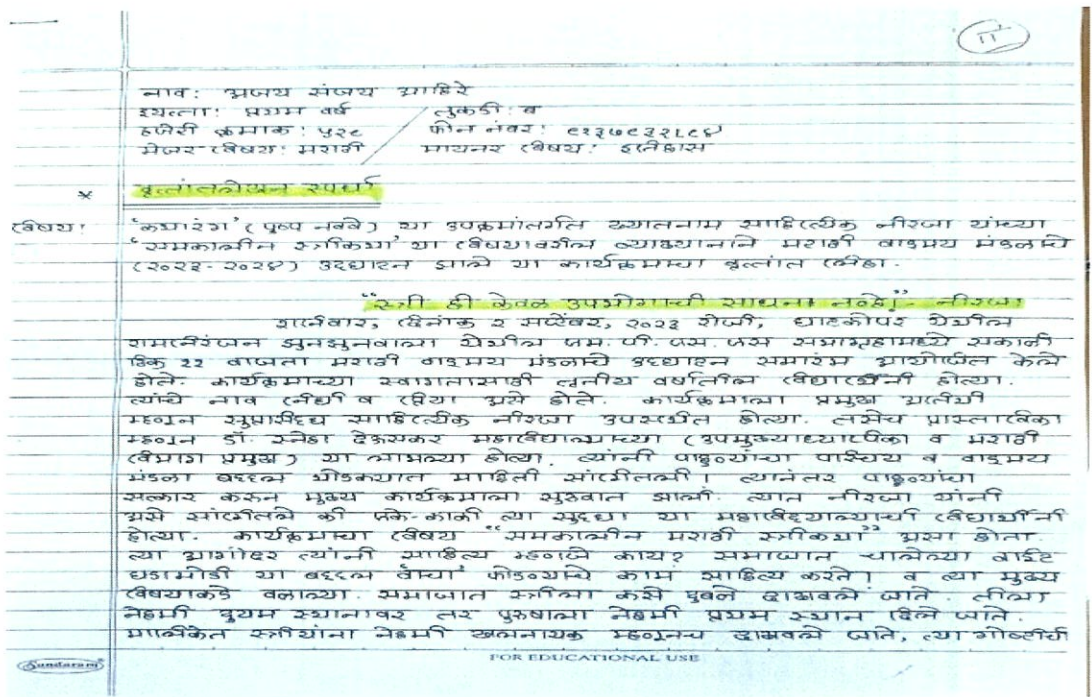 ११
नाव: अजय संजय आहिरे
इयत्ता: प्रथम वर्ष / तुकडी: ब
हजेरी क्रमांक: ५२८ / फोन नंबर:
मेजर विषय: मराठी / मायनर विषय: इतिहास
* वृत्तांतलेखन स्पर्धा
विषय: 'कथारंग' (पुष्प नववे) या उपक्रमांतर्गत ख्यातनाम साहित्यिक नीरजा यांच्या
'समकालीन स्त्रीकथा' या विषयावरील व्याख्यानाने मराठी वाङमय मंडळाचे
(२०२३-२०२४) उद्घाटन झाले या कार्यक्रमाचा वृत्तांत लिहा.
"स्त्री ही केवळ उपभोगाची साधना नव्हे!"- नीरजा
शनिवार, दिनांक २ सप्टेंबर, २०२३ रोजी, घाटकोपर येथील
रामनिरंजन झुनझुनवाला येथील एम. पी. एस. एस सभागृहामध्ये सकाळी
ठिक ११ वाजता मराठी वाङमय मंडळाचे उद्घाटन समारंभ आयोजीत केले
होते. कार्यक्रमाच्या स्वागतासाठी तृतीय वर्षातील विद्यार्थीनी होत्या.
त्यांचे नाव निधी व रिया असे होते. कार्यक्रमाला प्रमुख अतिथी
म्हणून सुप्रसिद्ध साहित्यिक नीरजा उपस्थित होत्या. तसेच प्रास्ताविका
म्हणून डॉ. स्नेहा देऊसकर महाविद्यालयाच्या (उपमुख्याध्यापिका व मराठी
विभाग प्रमुख) या लाभल्या होत्या. त्यांनी पाहुण्यांचा परिचय व वाङमय
मंडळा बद्दल थोडक्यात माहिती सांगितली। त्यानंतर पाहुण्यांचा
सत्कार करुन मुख्य कार्यक्रमाला सुरुवात झाली. त्यात नीरजा यांनी
असे सांगितले की एके-काळी त्या सुद्धा या महाविद्यालयाची विद्यार्थीनी
होत्या. कार्यक्रमाचा विषय "समकालीन मराठी स्त्रीकथा" असा होता.
त्या आगोदर त्यांनी साहित्य म्हणजे काय? समाजात चालेल्या वाईट
घडामोडी या बद्दल 'वाचा' फोडण्याचे काम साहित्य करते। व त्या मुख्य
विषयाकडे वळाल्या. समाजात स्त्रीला कसे दुबळे दाखवले जाते. तीला
नेहमी दुय्यम स्थानावर तर पुरुषाला नेहमी प्रथम स्थान दिले जाते.
मालिकेत स्त्रीयांना नेहमी खलनायक म्हणूनच दाखवले जाते, त्या गोष्टीची
Sundaram
FOR EDUCATIONAL USE